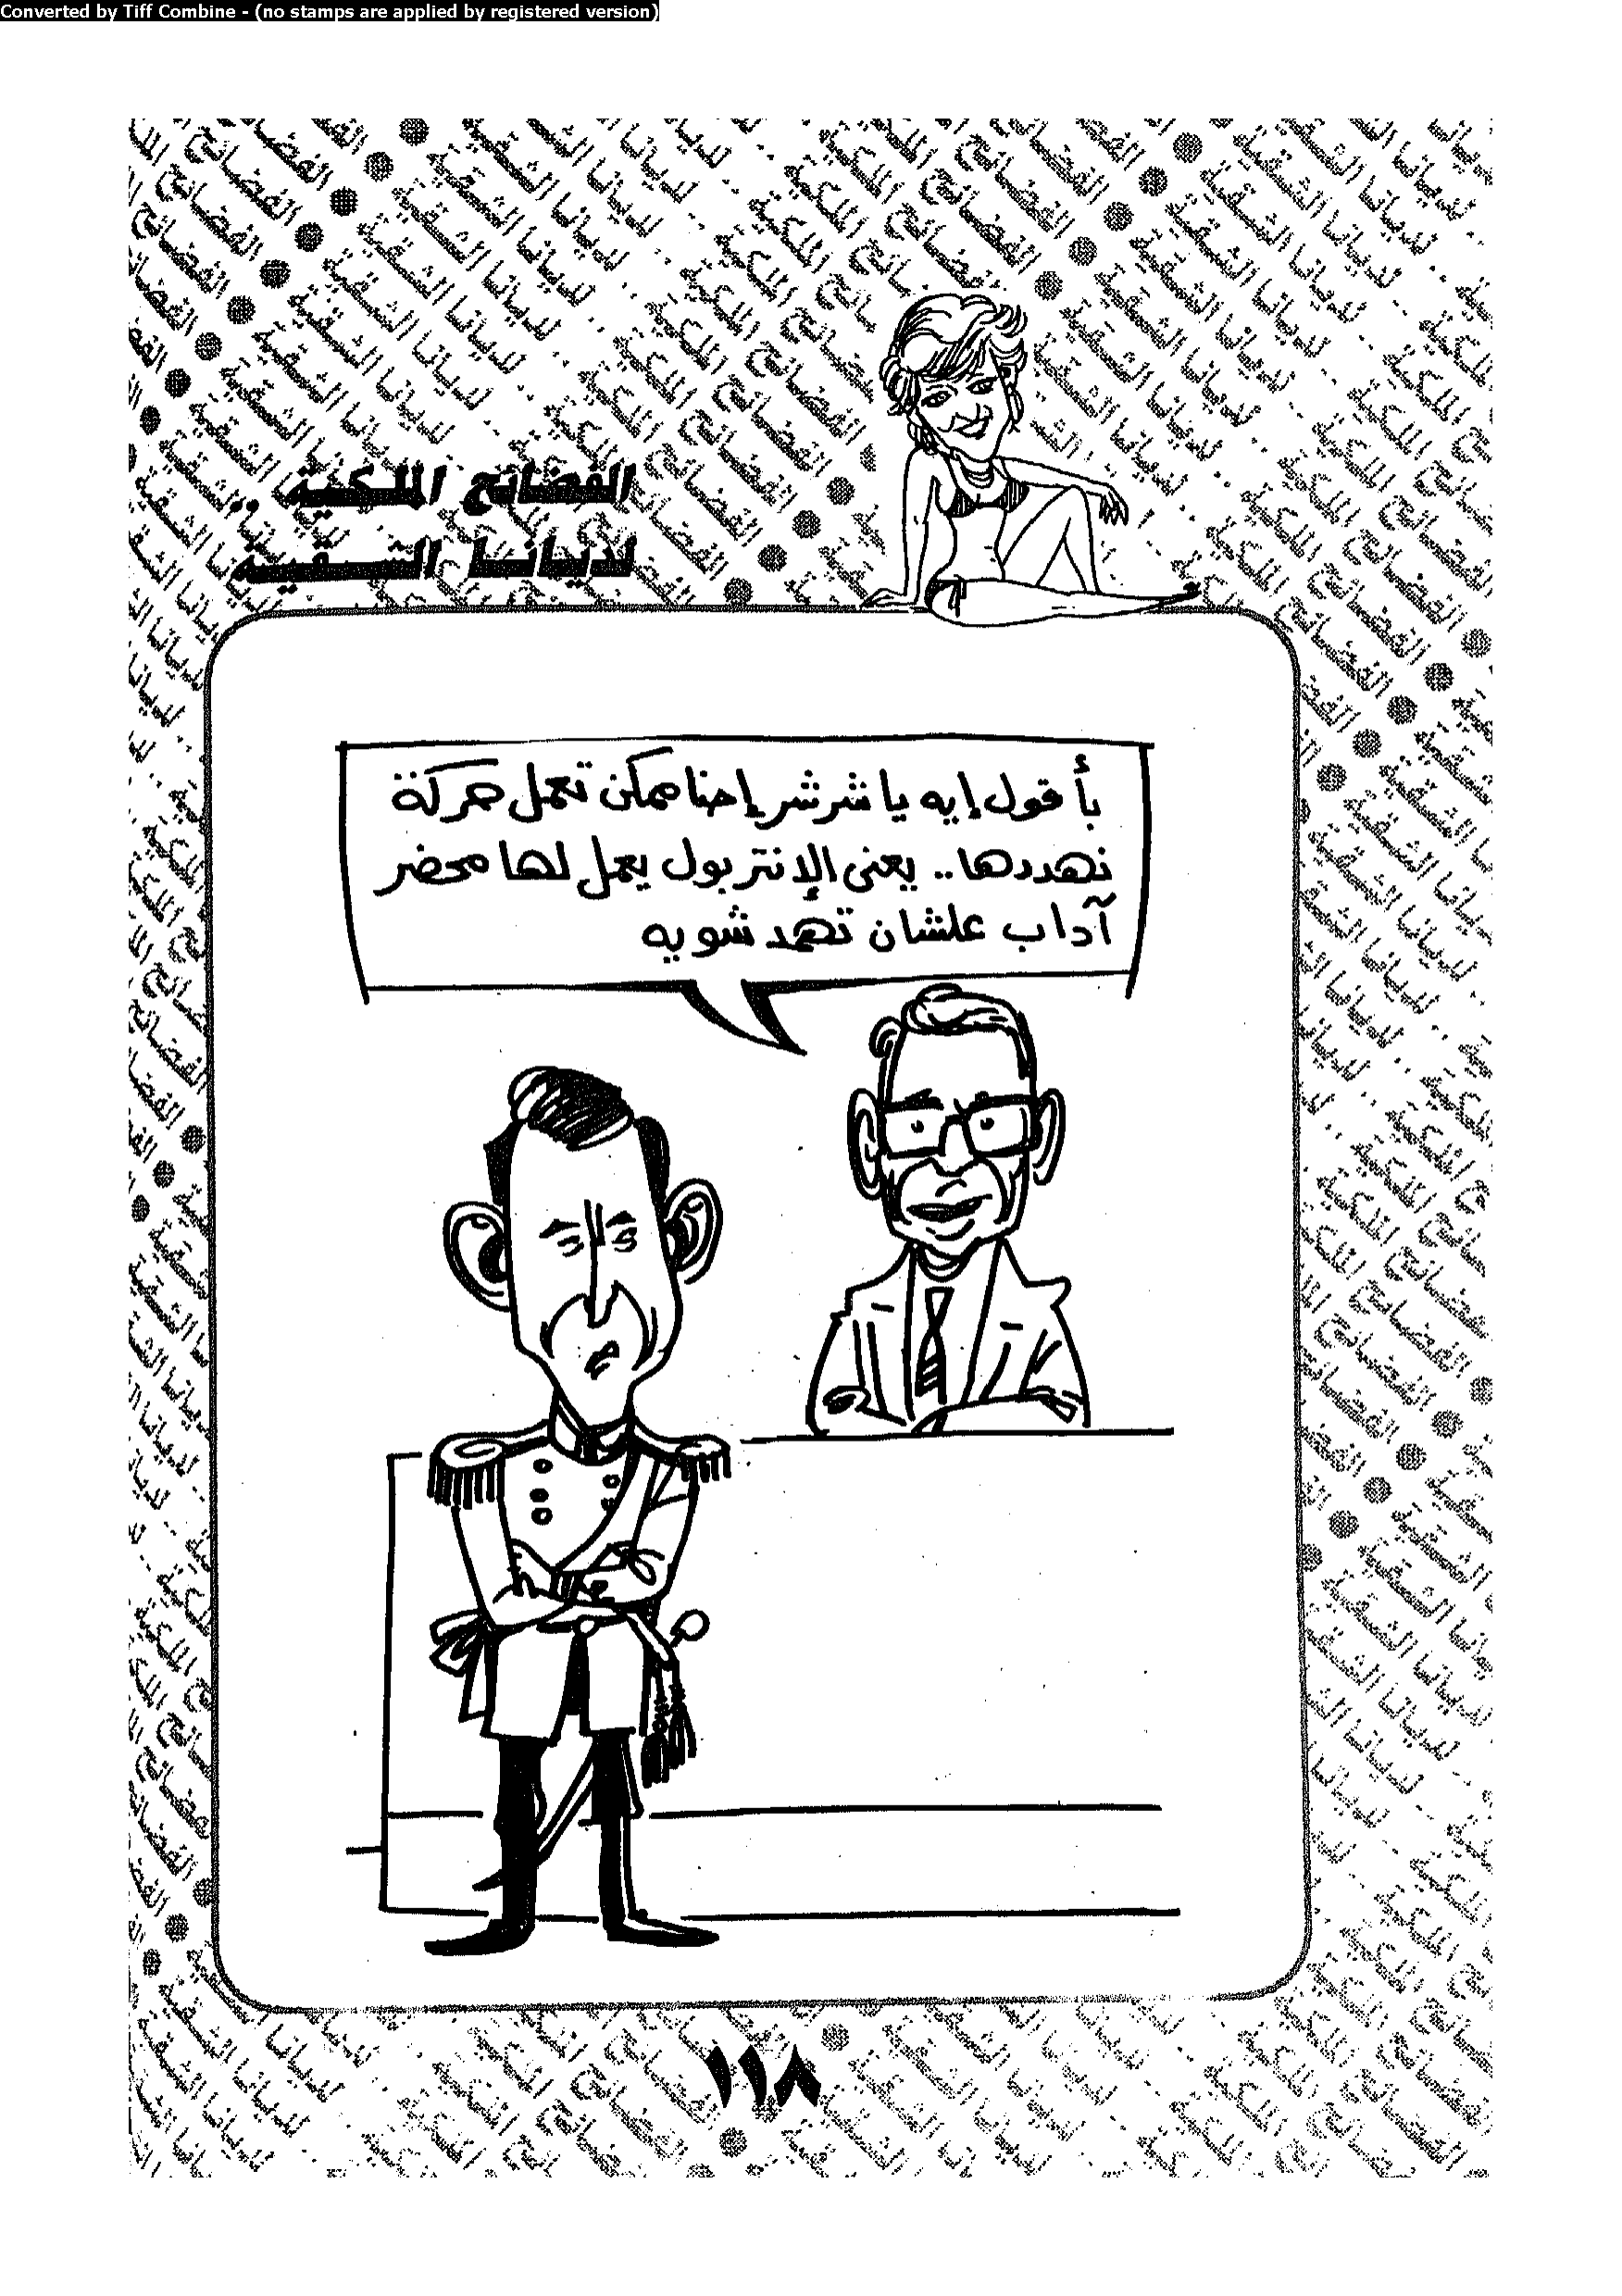 Converted by Tiff Combine - (no stamps are applied by registered version)
الفضائح الملكية ..
لديانا الشقية
بأقول إيه يا شرشر إحنا ممكن نعمل حركة
نهددها .. يعنى الإنتربول يعمل لها محضر
آداب علشان تهمد شويه
١١٨